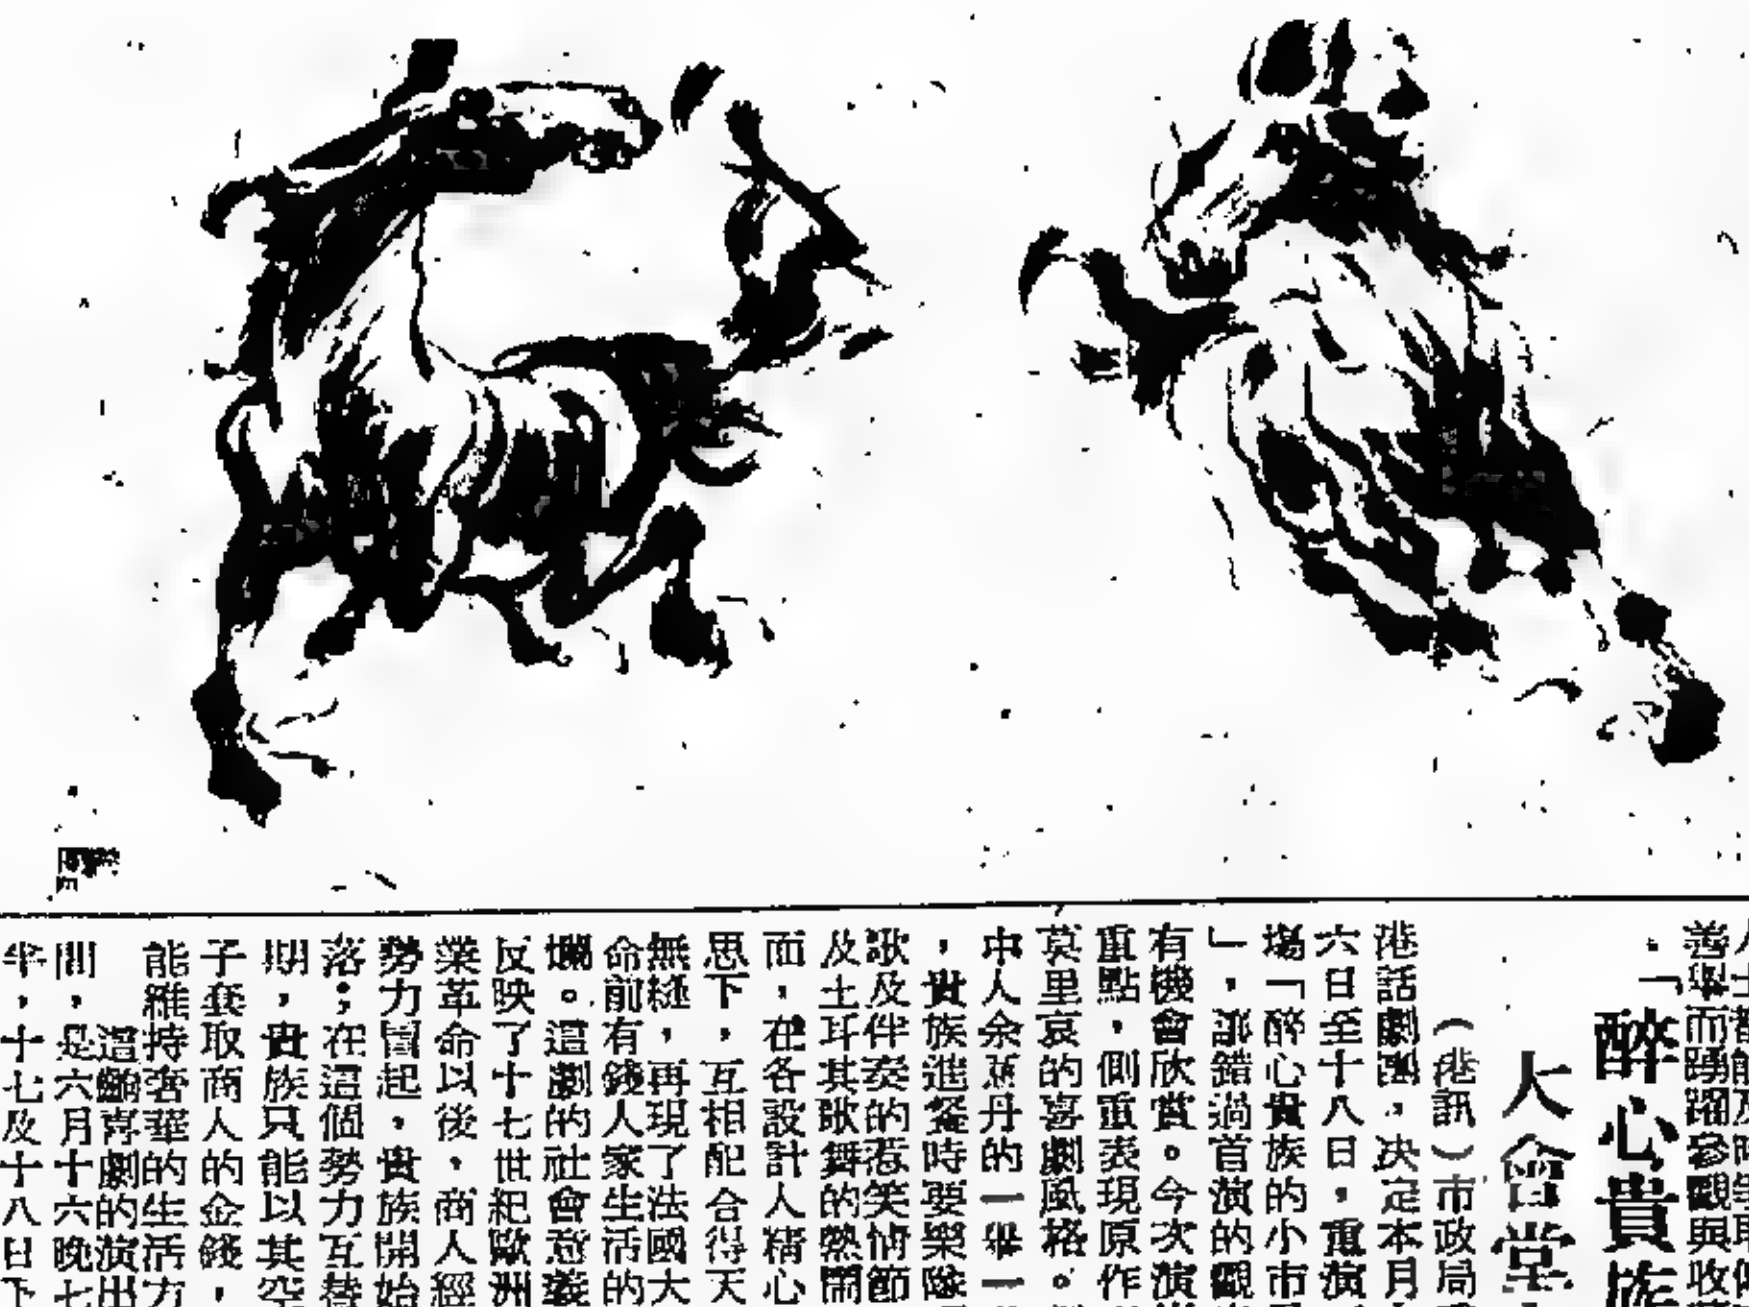 善舉而踴躍參觀與收
．「醉心貴族
大會堂
（港訊）市政局
港話劇團，决定本月
六日至十八日，重演
場「醉心貴族的小市
」，讓錯過首演的觀
有機會欣賞。今次演
重點，側重表現原作
莫里哀的喜劇風格。
中人余蕙丹的一舉一
，貴族進餐時要樂隊
歌及伴奏的惹笑情節
及土耳其歌舞的熱鬧
面，在各設計人精心
思下，互相配合得天
無縫，再現了法國大
命前有錢人家生活的
爛。這劇的社會意義
反映了十七世紀歐洲
業革命以後，商人經
勢力冒起，貴族開始
落；在這個勢力互替
期，貴族只能以其空
子套取商人的金錢，
能維持奢華的生活方
這齣喜劇的演出
間，是六月十六晚七
半，十七及十八日下